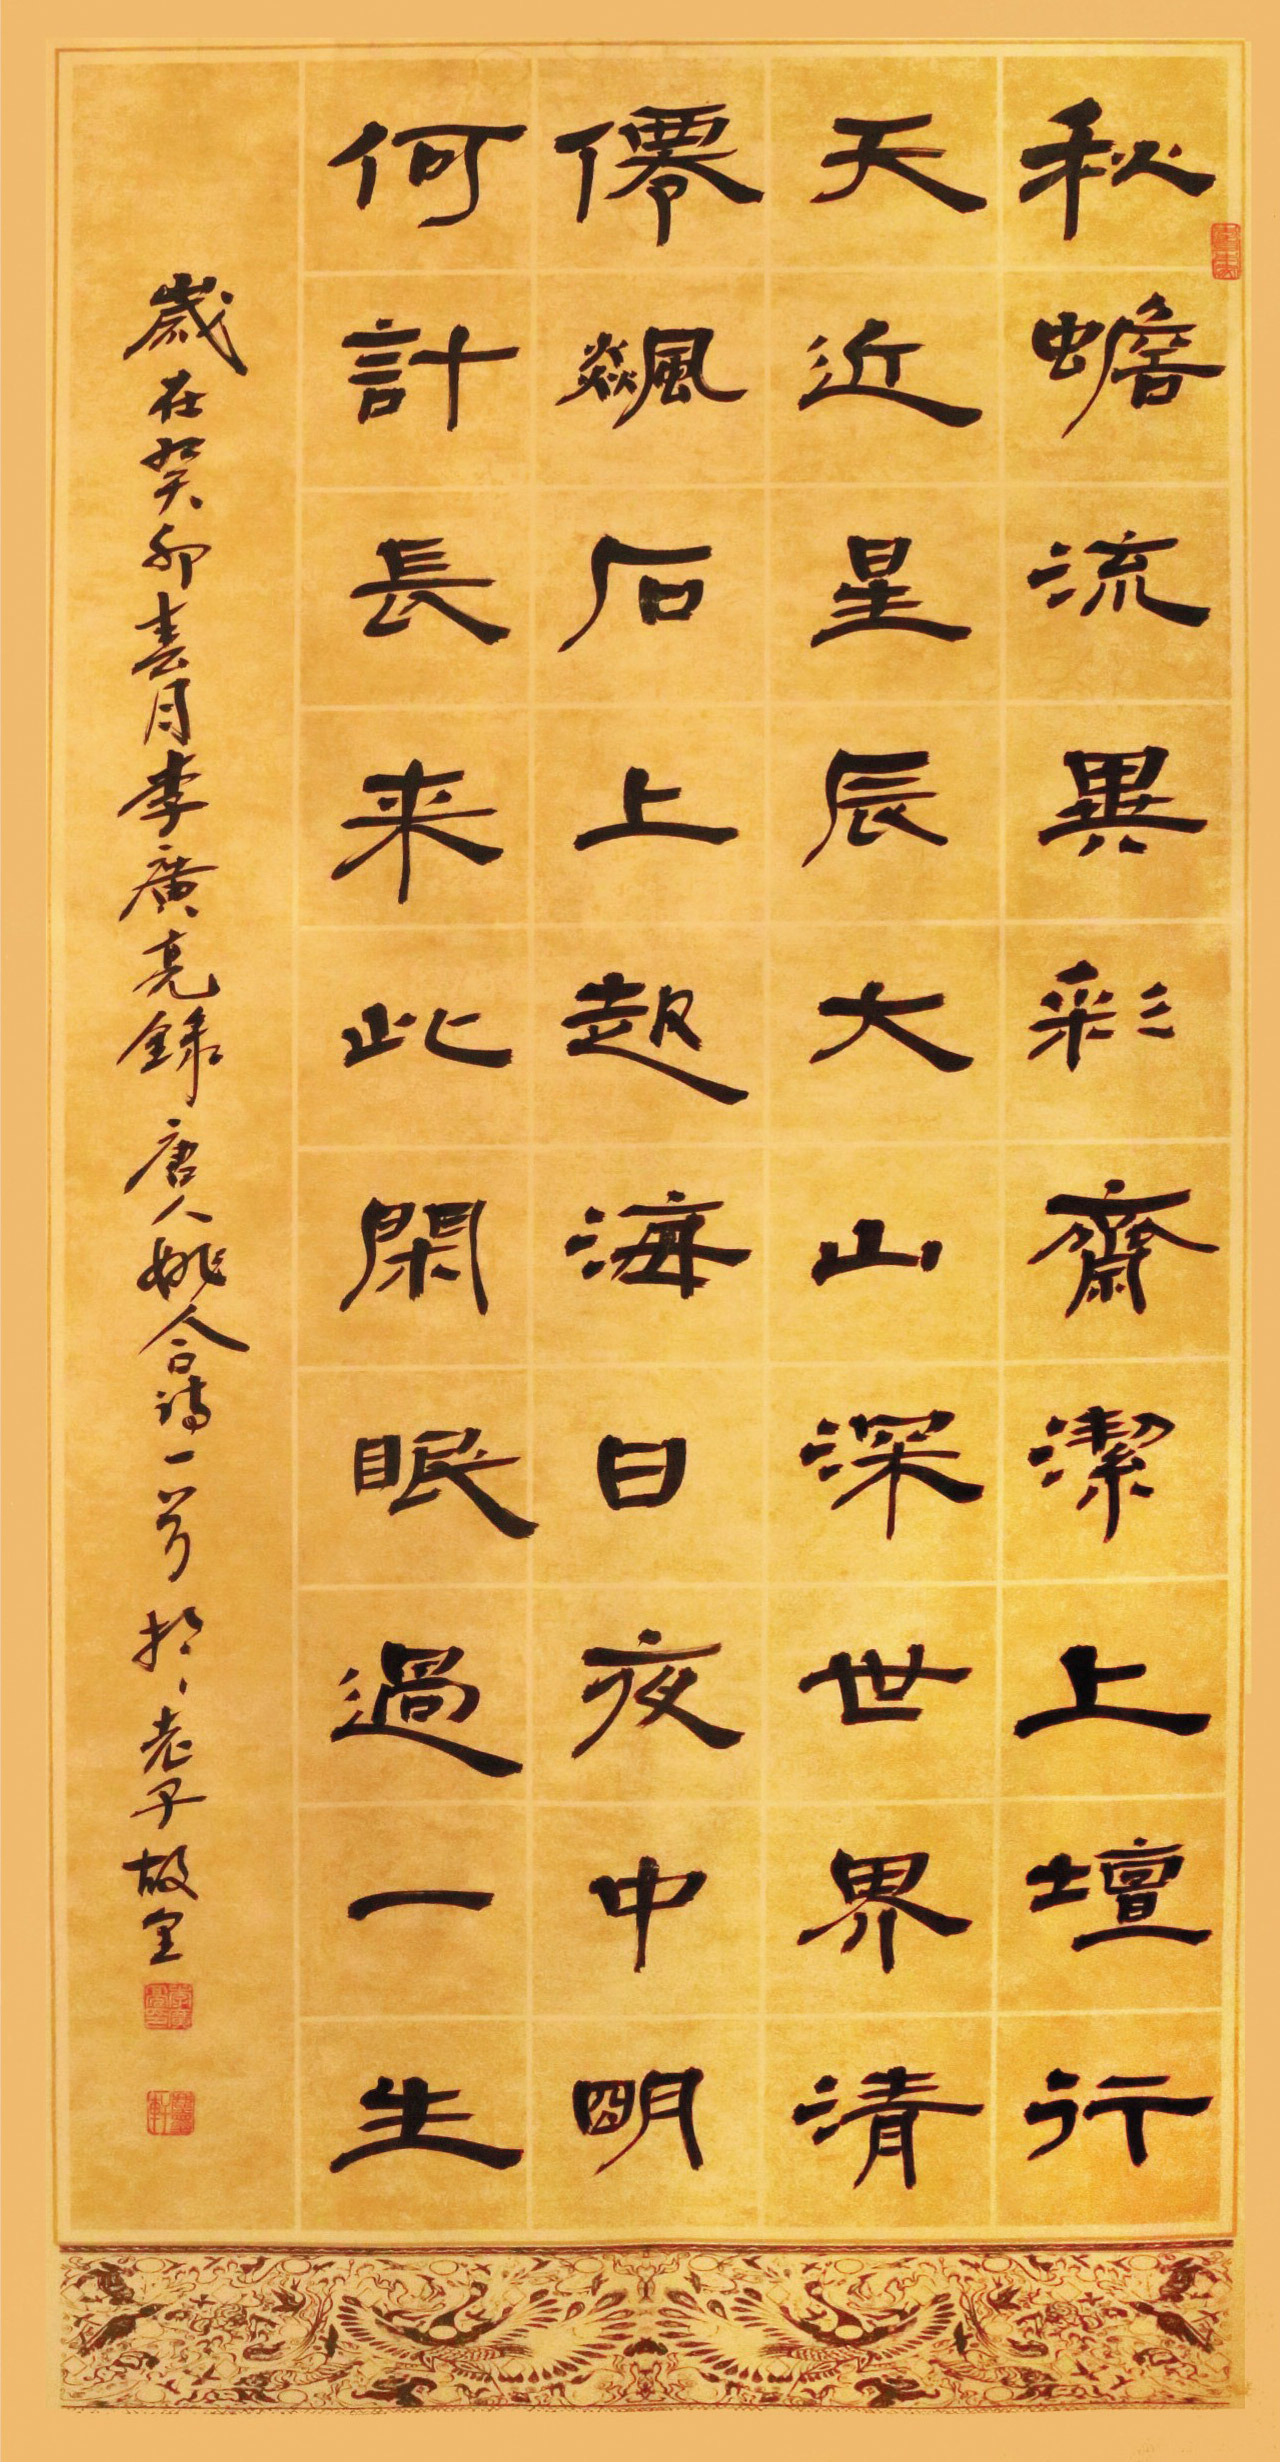 秋蟾流異彩齋潔上壇行
天近星辰大山深世界清
僊飇石上起海日夜中明
何計長来此閑眠過一生
歲在癸卯春月李廣亮錄唐人姚合詩一首於老子故里